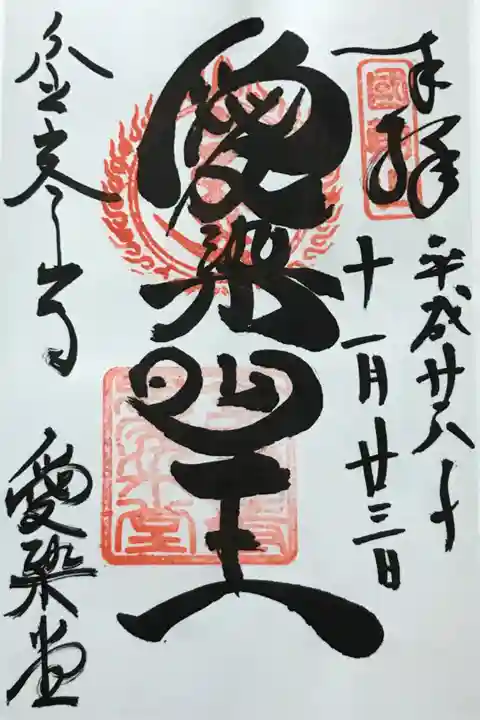 奉拝
平成廿八年
十一月廿三日
愛染明王
金峯山寺
愛染堂